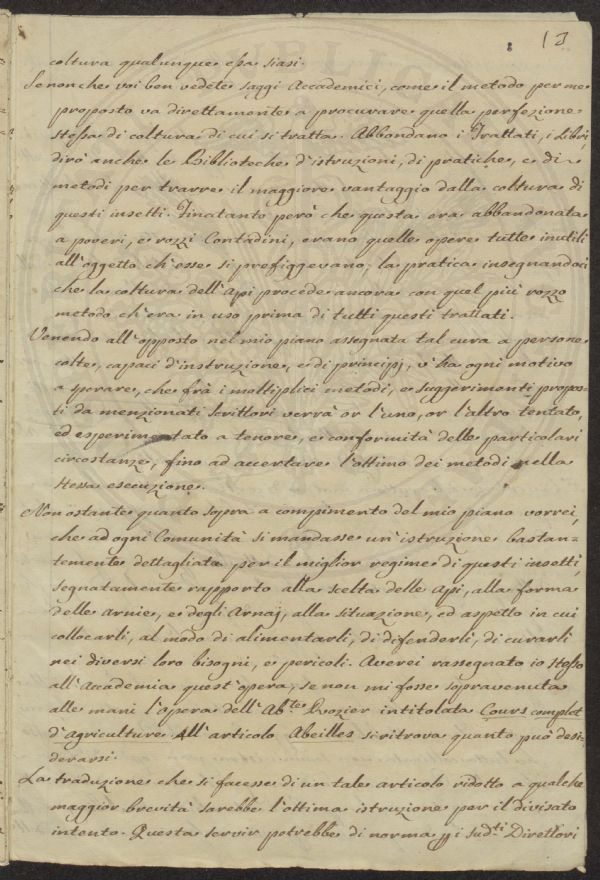 13
coltura qualunque essa siasi.
Senonche voi ben vedete saggi Accademici, come il metodo per me
proposto va direttamente a procurare quella perfezione
stessa di coltura di cui si tratta. Abbondano i Trattati, i Libri,
dirò anche le Biblioteche d'istruzioni, di pratiche, e di
metodi per trarre il maggiore vantaggio dalla coltura di
questi insetti. Fincatanto però che questa era abbandonata
a poveri, e rozzi Contadini, erano quelle opere tutte inutili
all'oggetto ch'esse si prefiggevano, la pratica insegnandoci
che la coltura dell'Api procede ancora con quel più rozzo
metodo ch'era in uso prima di tutti questi trattati.
Venendo all'opposto nel mio piano assegnata tal cura a persone
colte, capaci d'instruzione, e di principj, v'ha ogni motivo
a sperare, che frà i moltiplici metodi, e suggerimenti propos-
ti da menzionati Scrittori verrà or l'uno, or l'altro tentato,
ed esperimentato a tenore, e conformità delle particolari
circostanze, fino ad accertare l'ottimo dei metodi nella
stessa esecuzione.
Non ostante quanto sopra a compimento del mio piano vorrei,
che ad ogni Comunità si mandasse un'istruzione bastan-
temente dettagliata per il miglior regime di questi insetti,
segnatamente rapporto alla scelta delle Api, alla forma
delle Arnie, e degli Arnaj, alla situazione, ed aspetto in cui
collocarli, al modo di alimentarli, di difenderli, di curarli
nei diversi loro bisogni, e pericoli. Averei rassegnato io stesso
all'Accademia quest'opera, se non mi fosse sopravenuta
alle mani l'opera dell'Ab.te Rozier intitolata Cours complet
d'agriculture. All'articolo Abeilles si ritrova quanto può desi-
derarsi.
La traduzione che si facesse di un tale articolo ridotto a qualche
maggior brevità sarebbe l'ottima istruzione per il divisato
intento. Questa servir potrebbe di norma pj i sud.ti Direttori